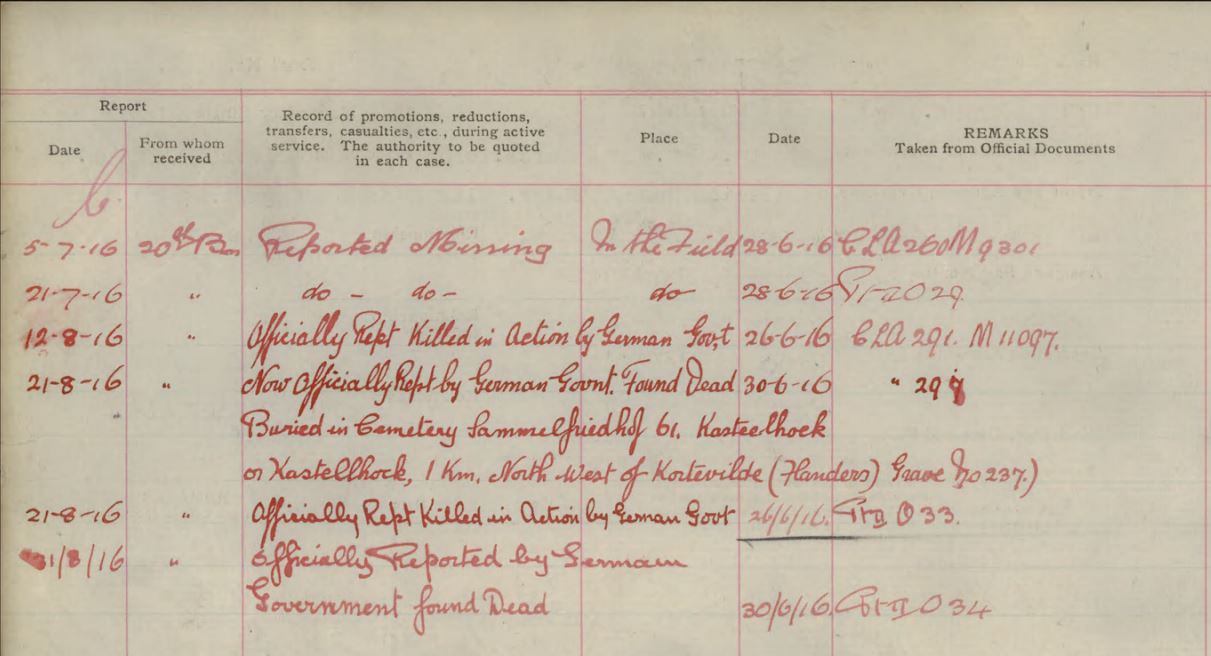 Report
Date
From whom
received
Record of promotions, reductions,
transfers, casualties, etc., during active
service. The authority to be quoted
in each case.
Place
Date
REMARKS
Taken from Official Documents
5-7-16 20th Bn Reported Missing In the Field 28-6-16 CLA 260 M 9301
21-7-16 " do - do - do 28-6-16 O 29
12-8-16 " Officially Rept Killed in Action by German Govt 26-6-16 CLA 291. M 11097.
21-8-16 " Now Officially Rept by German Govnt. Found Dead 30-6-16 " 299
Buried in Cemetery Sammelfriedhof 61. Kasteelhock
or Kastellhock, 1 Km. North West of Kortevilde (Flanders) Grave No 237.)
21-8-16 " Officially Rept Killed in Action by German Govt 26/6/16. Pt II O 33.
31/8/16 " Officially Reported by German
Government found Dead 30/6/16. Pt II O 34